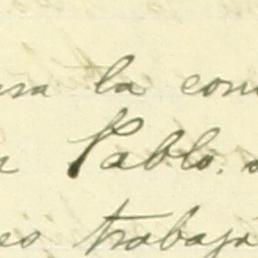 la con
Pablo.
es trabajo